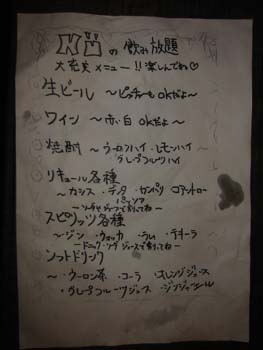 の飲み放題
大充実メニュー!!楽しんでね♡
生ビール 〜ピッチャーもOKだよ〜
ワイン 〜赤・白 OKだよ〜
焼酎 〜ウーロンハイ・レモンハイ
・グレープフルーツハイ
リキュール各種
〜カシス・ピーチ・カンパリ コアントロー
パッソア
ーソーダ・ジュースで割ってねー
スピリッツ各種
〜ジン・ウォッカ・ラム・テキーラ
ートニック・ソーダ ジュースで割ってねー
ソフトドリンク
〜・ウーロン茶・コーラ・オレンジジュース
・グレープフルーツジュース・ジンジャエール